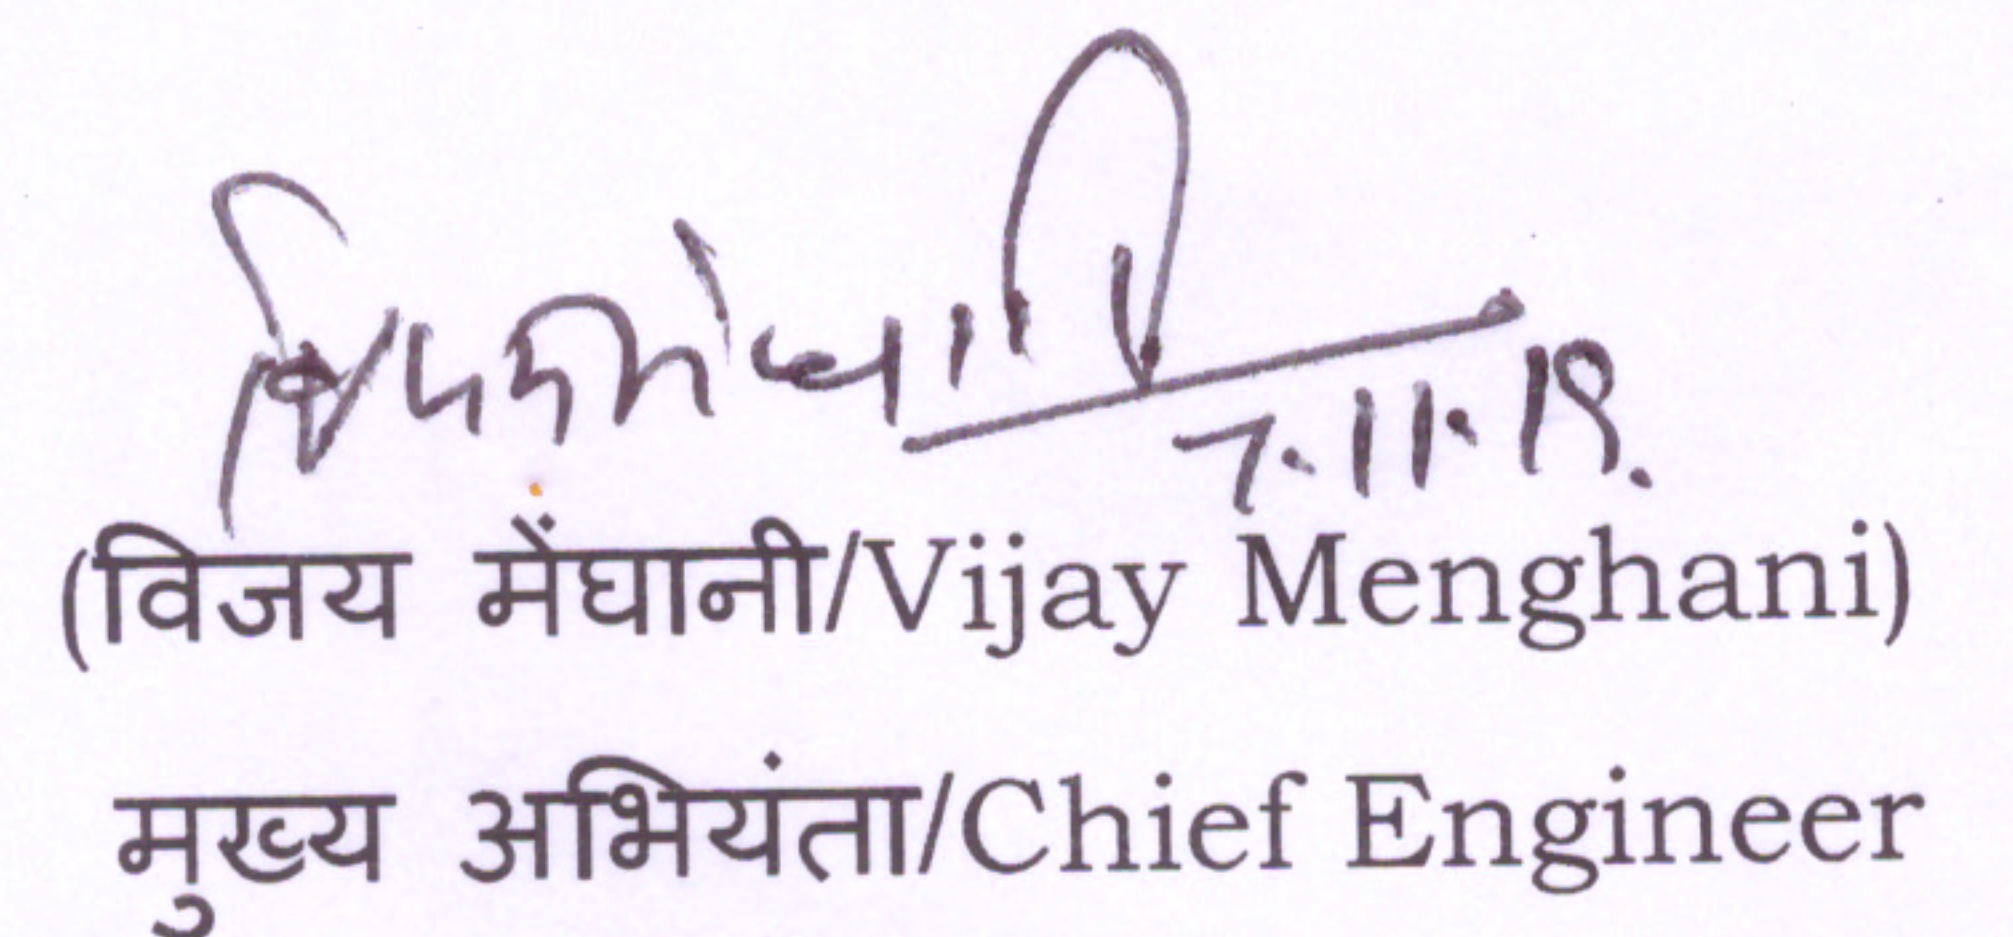 विजय मेघानी
7.11.19.
(विजय मेंघानी/Vijay Menghani)
मुख्य अभियंता/Chief Engineer